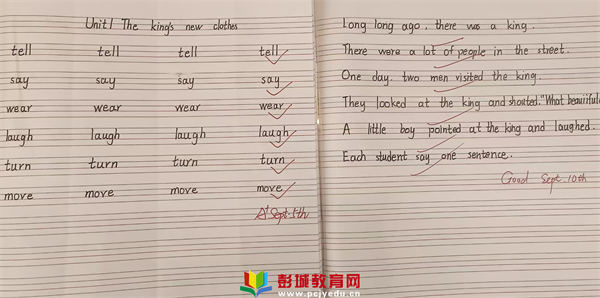 Unit1 The king's new clothes
tell tell tell tell
say say say say
wear wear wear wear
laugh laugh laugh laugh
turn turn turn turn
move move move move
Sept. 5th
Long long ago, there was a king.
There were a lot of people in the street.
One day, two men visited the king.
They looked at the king and shouted, "What beautiful
A little boy pointed at the king and laughed.
Each student say one sentence.
Good Sept. 10th
彭城教育网
www.pcjyedu.cn